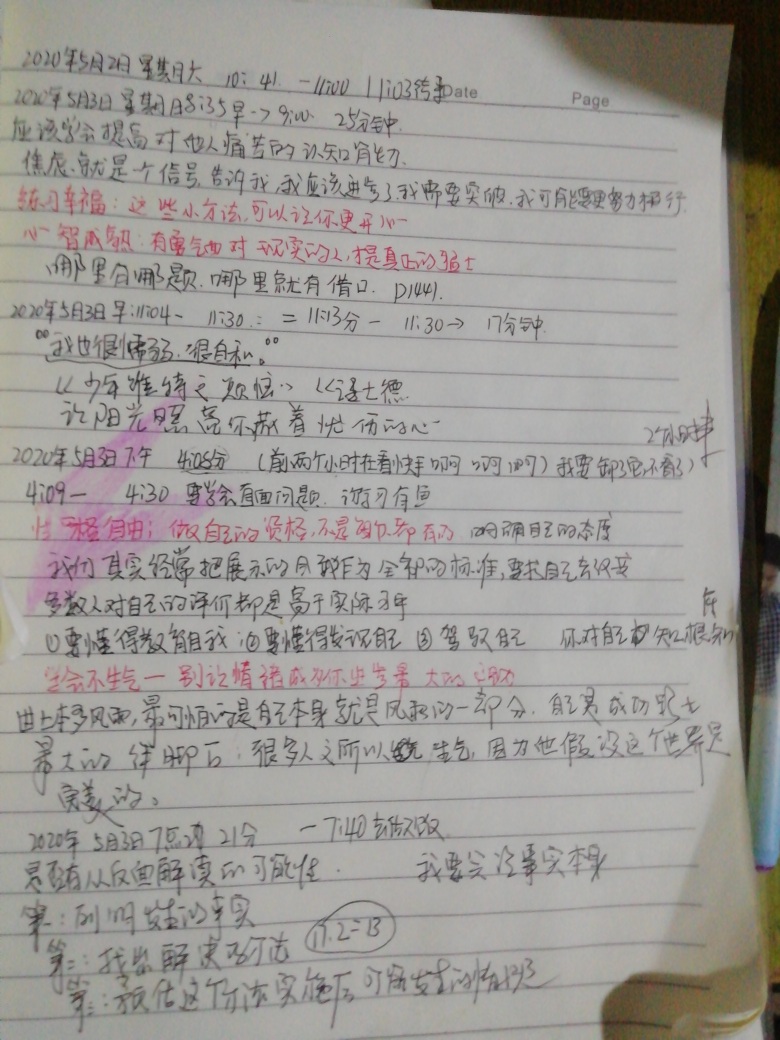 2020年5月2日 星期六 10:41 -11:00 11:03
Date Page
2020年5月3日 星期日 8:35早->9:00 25分钟.
应该学会提高对他人痛苦的认知能力.
焦虑.就是一个信号,告诉我,我应该进步了我需要突破.我可能需要更努力才行.
练习幸福:这些小方法,可以让你更开心
心智成熟:有勇气面对现实的人,才是真正的骑士
哪里有难题.哪里就有借口. P144.
2020年5月3日 早:11:04- 11:30 : = 11:13分 - 11:30-> 17分钟.
"我也很懦弱.很自私。"
《少年维特之烦恼》《歌德
让阳光照亮你藏着忧伤的心
2个小时
2020年5月3日 下午 4:05分 (前两个小时在看快手 啊 啊 啊) 我要卸了它不看了)
4:09- 4:30 要学会直面问题.
性格自由:做自己的资格,不是每个人都有的 明确自己的态度
我们其实经常把展示的自我作为全部的标准,要求自己去
多数人对自己的评价都是高于实际水平
①要懂得教育自我:②要懂得发现自己 ③驾驭自己 你对自己的知根知
底
学会不生气-别让情绪成为你业务最大的
世上本多风雨,最可怕的是自己本身就是风雨的一部分.自己是成功路上
最大的绊脚石:很多人之所以 生气,因为他假设这个世界是
完美的。
2020年 5月3日 7点 21分 -7:40去做饭
是否有从反面解读的可能性. 我要关注事实本身
第一:列明发生的事实
11.2=13
第二:找出解决的方法
第三:预估这个方法实施后可能发生的情况